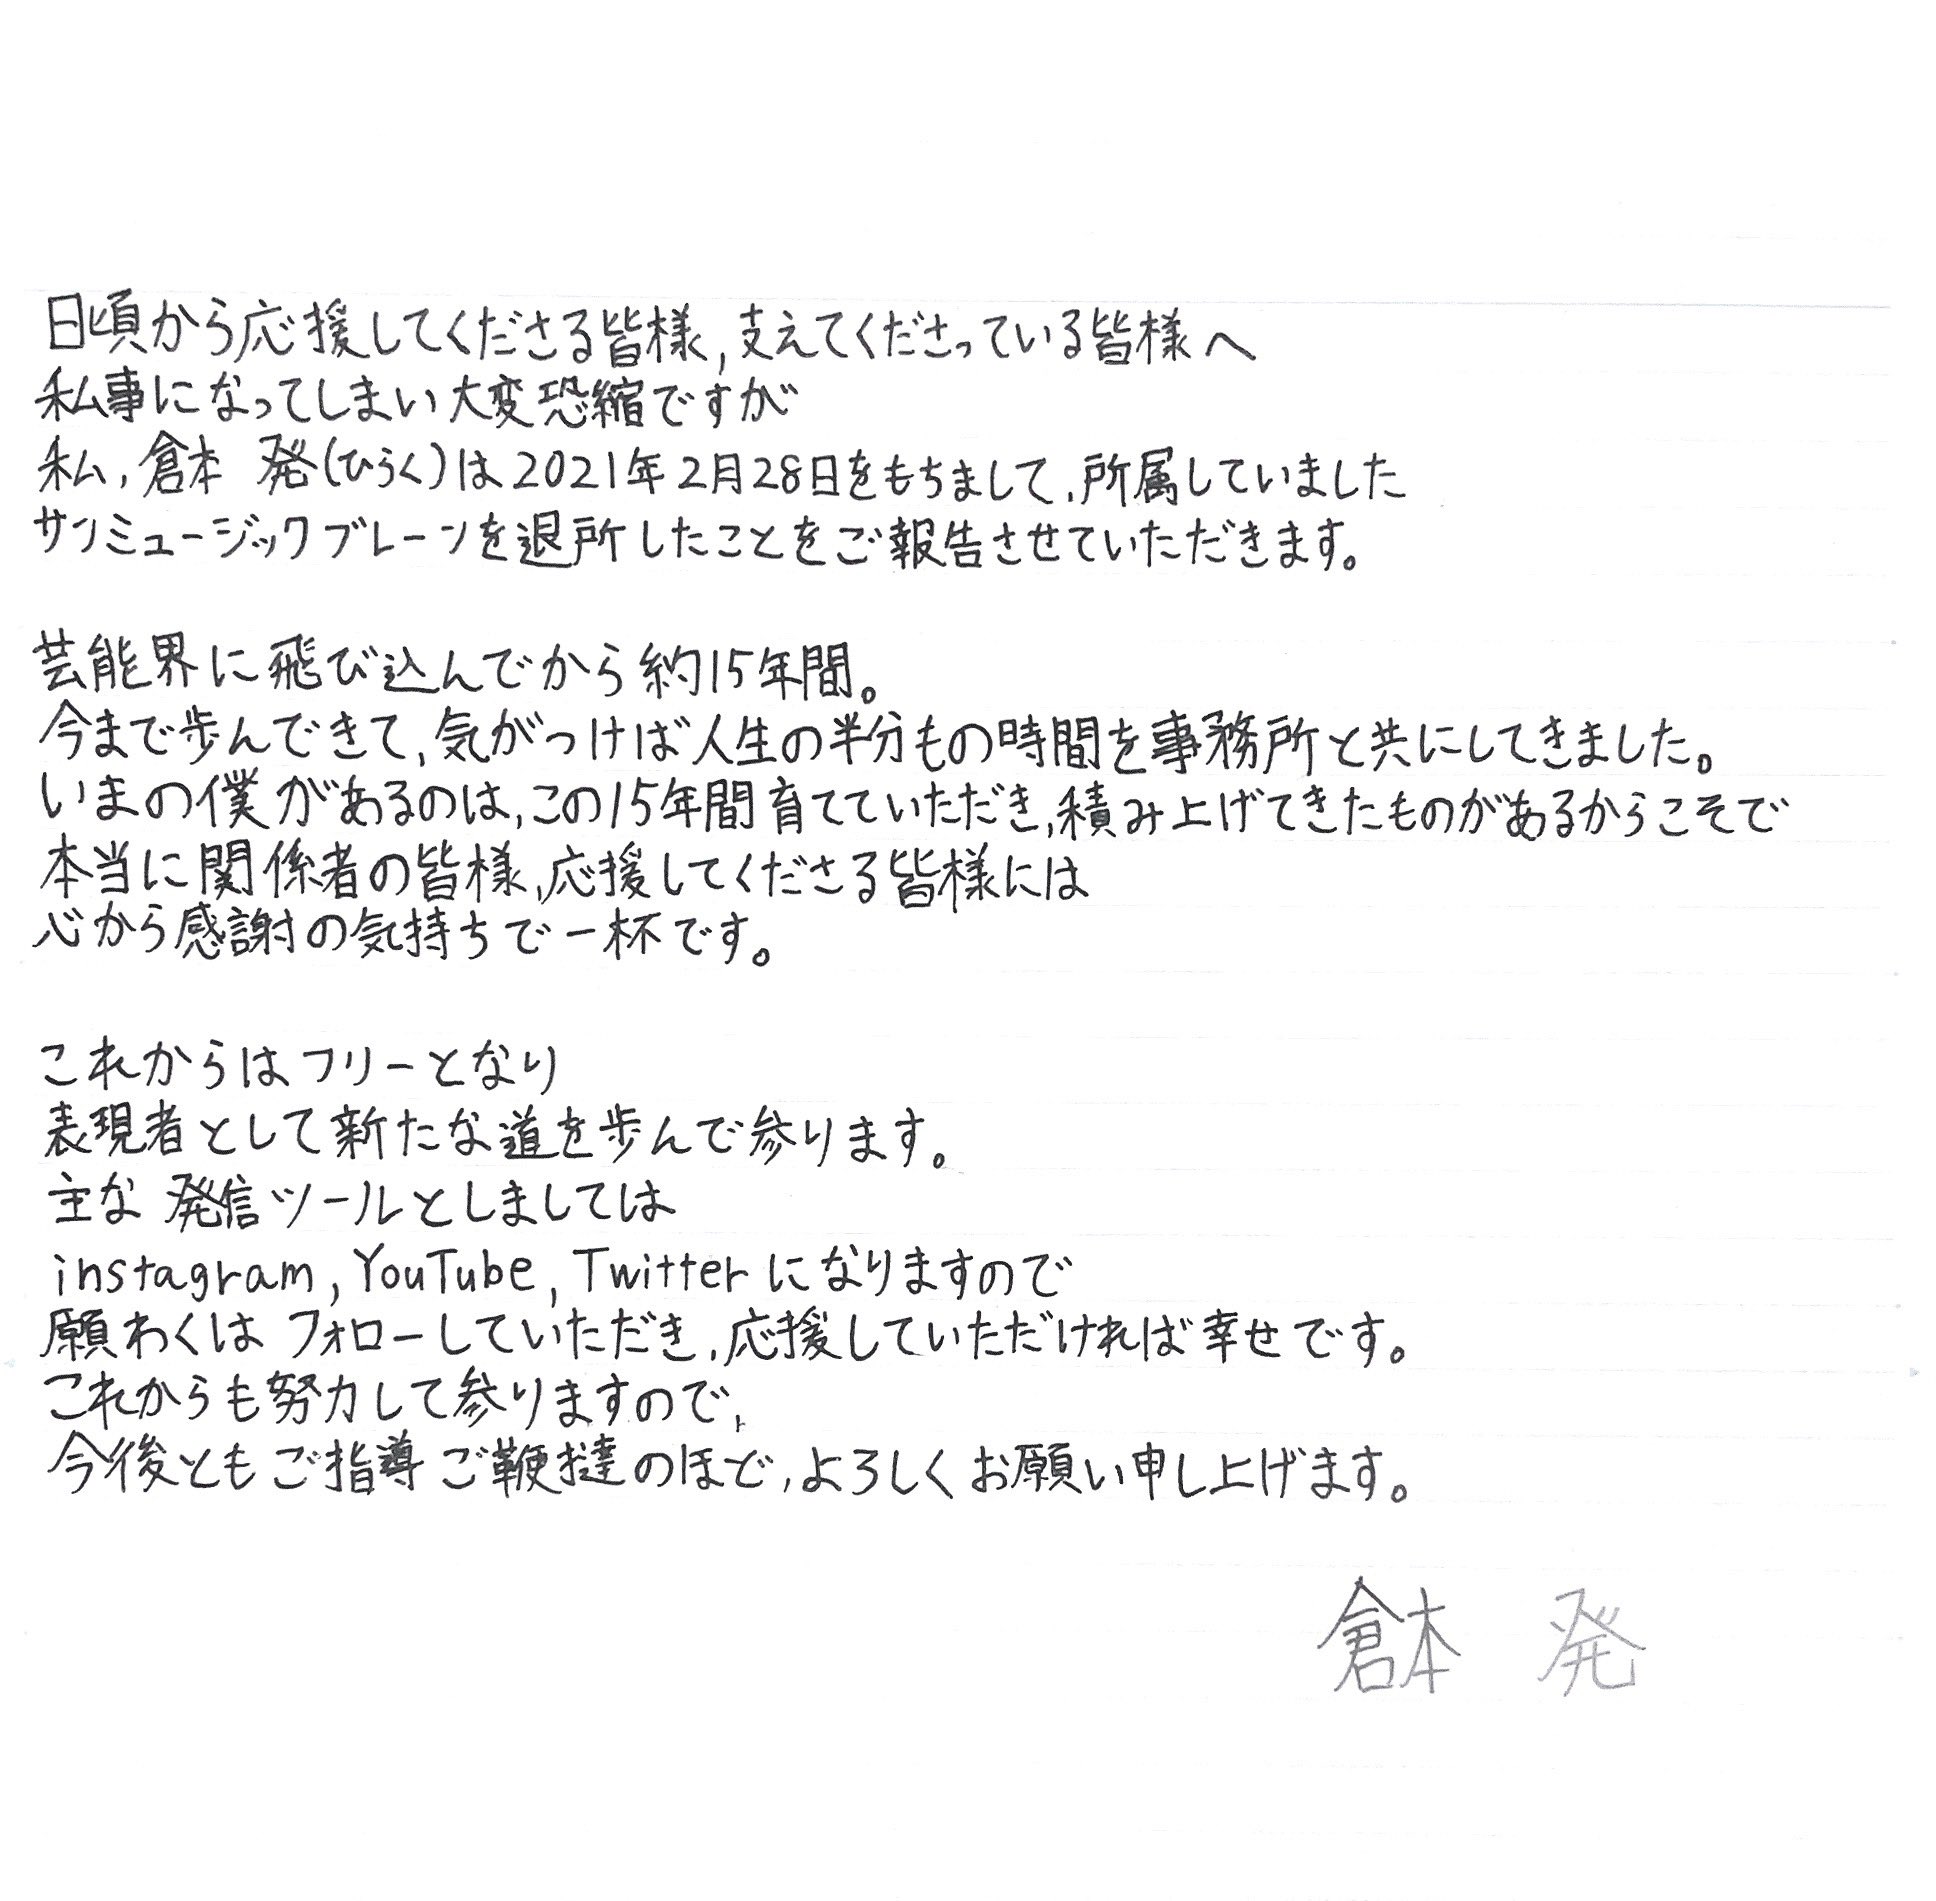 日頃から応援してくださる皆様,支えてくださっている皆様へ
私事になってしまい大変恐縮ですが
私,倉本 発(ひらく)は2021年2月28日をもちまして,所属していました
サンミュージックブレーンを退所したことをご報告させていただきます。
芸能界に飛び込んでから約15年間。
今まで歩んできて,気がつけば人生の半分もの時間を事務所と共にしてきました。
いまの僕があるのは,この15年間育てていただき,積み上げてきたものがあるからこそで
本当に関係者の皆様,応援してくださる皆様には
心から感謝の気持ちで一杯です。
これからはフリーとなり
表現者として新たな道を歩んで参ります。
主な発信ツールとしましては
instagram,YouTube,Twitterになりますので
願わくはフォローしていただき,応援していただければ幸せです。
これからも努力して参りますので,
今後ともご指導ご鞭撻のほど,よろしくお願い申し上げます。
倉本 発